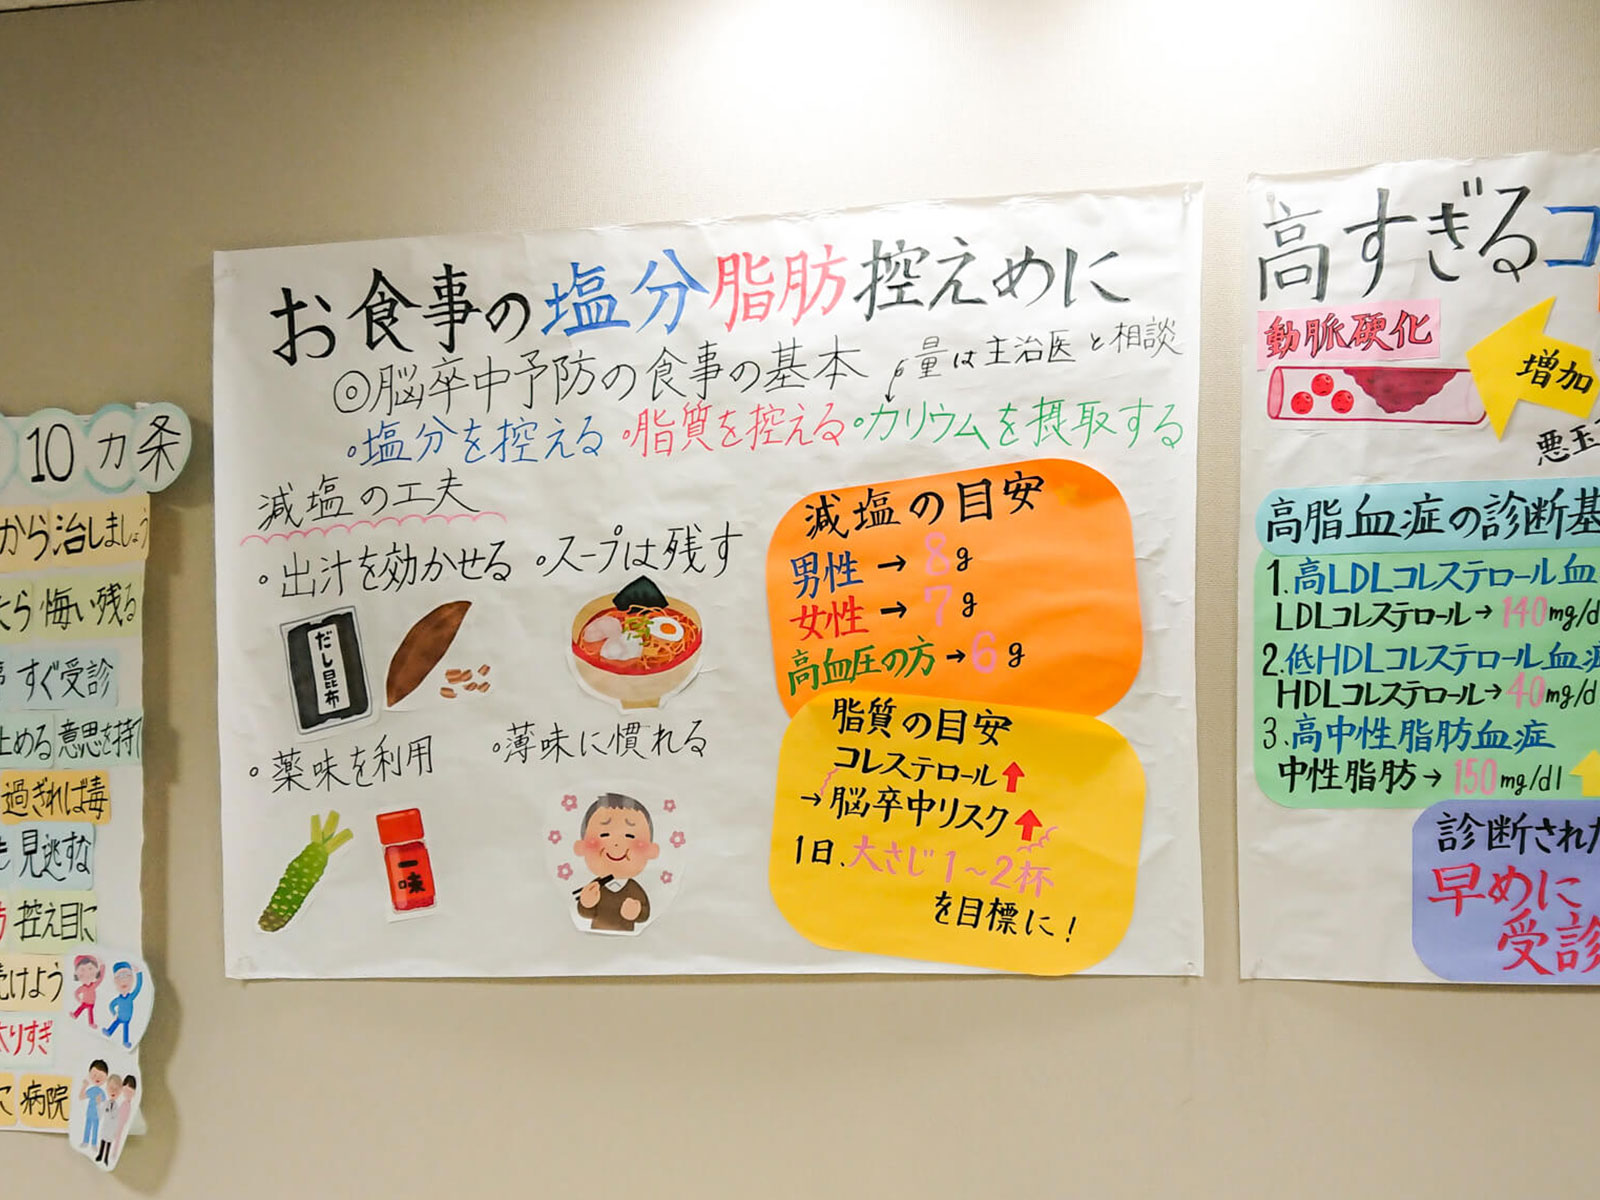 10カ条
から治しましょう
たら悔い残る
すぐ受診
止める意思を持て
過ぎれば毒
も見逃すな
控え目に
続けよう
太りすぎ
病院
お食事の塩分脂肪控えめに
◎脳卒中予防の食事の基本
量は主治医と相談
・塩分を控える・脂質を控える・カリウムを摂取する
減塩の工夫
・出汁を効かせる・スープは残す
だし昆布
・薬味を利用
・薄味に慣れる
一味
減塩の目安
男性→8g
女性→7g
高血圧の方→6g
脂質の目安
コレステロール↑
→脳卒中リスク↑
1日、大さじ1～2杯
を目標に!
高すぎるコ
動脈硬化
増加
悪玉
高脂血症の診断基
1.高LDLコレステロール血
LDLコレステロール→140mg/d
2.低HDLコレステロール血症
HDLコレステロール→40mg/d
3.高中性脂肪血症
中性脂肪→150mg/dl
診断された
早めに
受診